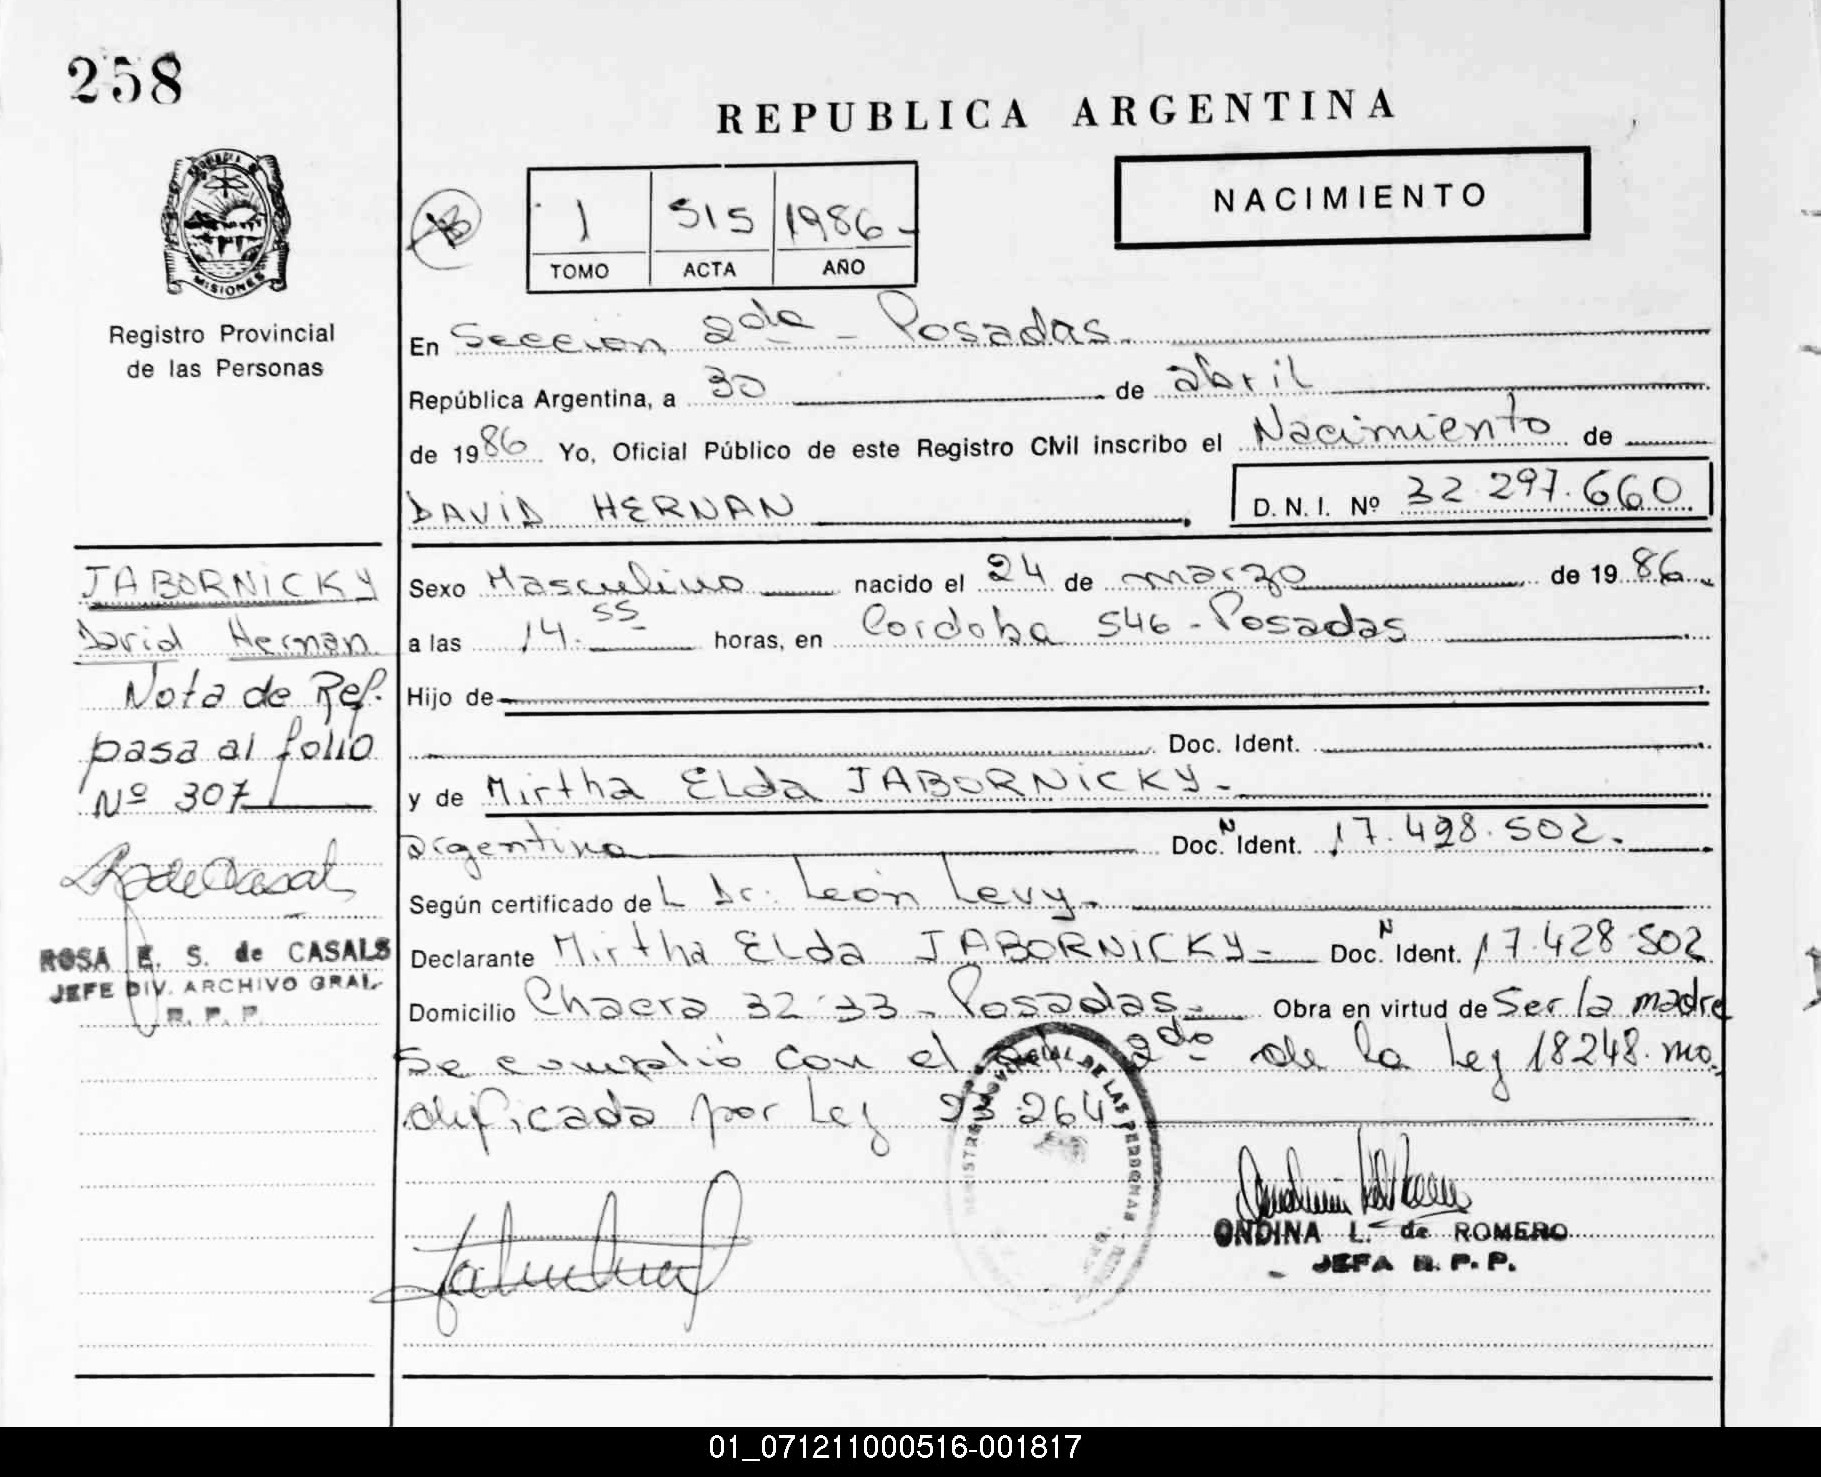 258
REPUBLICA ARGENTINA
NACIMIENTO
1 515 1986-
TOMO ACTA AÑO
MISIONES
Registro Provincial
de las Personas
En Seccion 2da - Posadas.
República Argentina, a 30 de abril
de 1986 Yo, Oficial Público de este Registro Civil inscribo el Nacimiento de
DAVID HERNAN
D.N.I. Nº 32.297.660
JABORNICKY
David Hernan
Nota de Ref.
pasa al folio
Nº 307
ROSA E. S. de CASALS
JEFE DIV. ARCHIVO GRAL.
R. P. P.
Sexo Masculino nacido el 24 de marzo de 1986.
a las 14.55 horas, en Cordoba 546 - Posadas
Hijo de
Doc. Ident.
y de Mirtha Elda JABORNICKY.
argentina Doc. N Ident. 17.428.502.
Según certificado de L Dr. León Levy.
Declarante Mirtha Elda JABORNICKY Doc. N Ident. 17.428.502
Domicilio Chacra 32-33 - Posadas Obra en virtud de Ser la madre
Se cumplió con el 2do de la Ley 18248. mo
dificada por Ley 23.264
PROVINCIAL DE LAS PERSONAS
ONDINA L. de ROMERO
JEFA R. P. P.
01_071211000516-001817